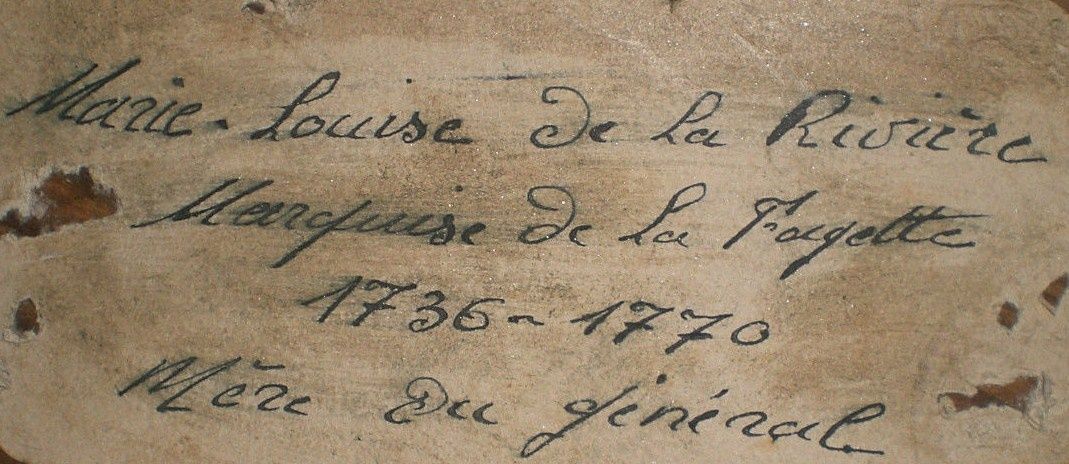 Marie-Louise de La Rivière
Marquise de La Fayette
1736-1770
Mère du général